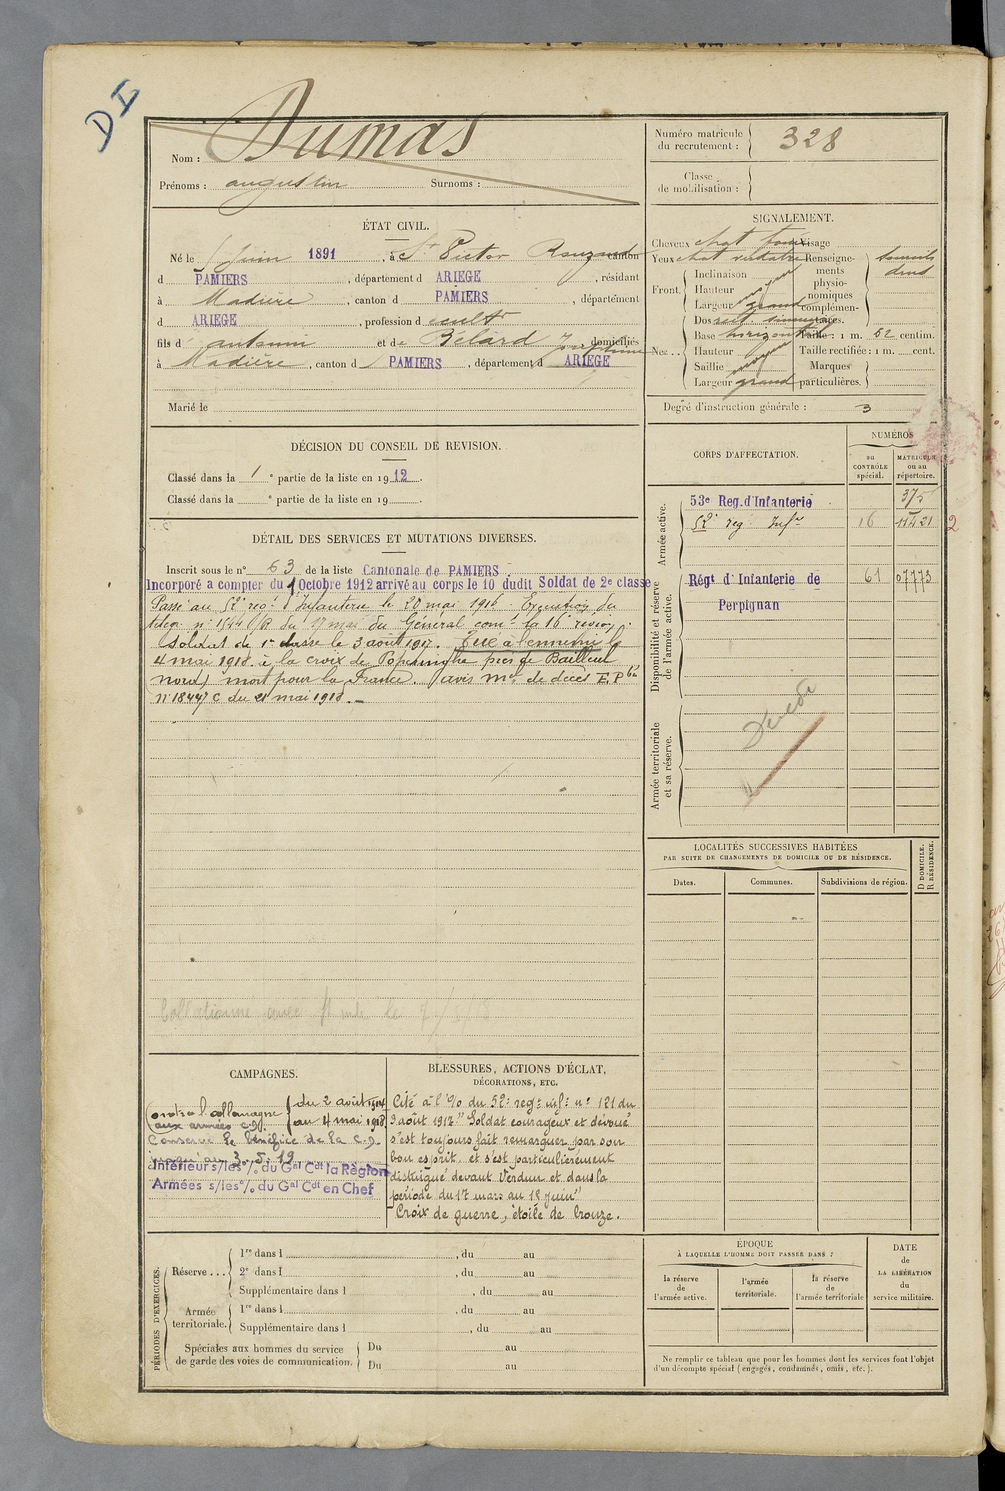 DI
Nom : Dumas
Prénoms : augustin Surnoms :
Numéro matricule du recrutement : 328
Classe de mobilisation :
ÉTAT CIVIL.
Né le 5 juin 1891, à St Victor Rouzaud canton
d PAMIERS, département d ARIEGE, résidant
à Madière, canton d PAMIERS, département
d ARIEGE, profession d cultr
fils d' antonin et de Bélard Joséphine domiciliés
à Madière, canton d PAMIERS, département d ARIEGE
Marié le
SIGNALEMENT.
Cheveux chat foncé Visage
Yeux chat Renseignements physionomiques complémentaires. sourcils drus
Front. Inclinaison
Hauteur
Largeur grand
Nez. Dos rect
Base horizontale Taille : 1 m. 52 centim.
Hauteur Taille rectifiée : 1 m. cent.
Saillie moyen Marques particulières.
Largeur grand
Degré d'instruction générale : 3
DÉCISION DU CONSEIL DE REVISION.
Classé dans la 1e partie de la liste en 1912.
Classé dans la e partie de la liste en 19
CORPS D'AFFECTATION.
NUMÉROS
au CONTRÔLE spécial.
MATRICULE ou au répertoire.
Armée active.
53e Reg. d'Infanterie 375
52e reg Infie 16 11421
2
Disponibilité et réserve de l'armée active.
Régt d'Infanterie de 61 07773
Perpignan
Armée territoriale et sa réserve.
Décédé
DÉTAIL DES SERVICES ET MUTATIONS DIVERSES.
Inscrit sous le n° 63 de la liste Cantonale de PAMIERS
Incorporé a compter du 1 Octobre 1912 arrivé au corps le 10 dudit Soldat de 2e classe
Passé au 52e regt d'Infanterie le 20 mai 1916. Exécution du
teleg. n° 1544 du 17 mai du Général comt la 16e region
Soldat de 1re classe le 3 août 1917. Tué à l'ennemi le
4 mai 1918 à la croix de Poperinghe près de Bailleul
nord) mort pour la France. (avis mel de décès E.P
n° 18447 C du 21 mai 1918.
LOCALITÉS SUCCESSIVES HABITÉES
PAR SUITE DE CHANGEMENTS DE DOMICILE OU DE RÉSIDENCE.
Dates. Communes. Subdivisions de région. D DOMICILE. R RÉSIDENCE.
CAMPAGNES.
Contre l'allemagne du 2 août 1914
aux armées C.D. au 4 mai 1918
Conserve le bénéfice de la C.D.
jusqu'au 3.5.19
Intérieur s/les o/. du Gal Cdt la Région
Armées s/les o/. du Gal Cdt en Chef
BLESSURES, ACTIONS D'ÉCLAT,
DÉCORATIONS, ETC.
Cité à l'O/O du 52e regt inf. n° 121 du
3 août 1917 "Soldat courageux et dévoué
s'est toujours fait remarquer par son
bon esprit et s'est particulièrement
distingué devant Verdun et dans la
période du 17 mars au 18 juin"
Croix de guerre, étoile de bronze.
PÉRIODES D'EXERCICES.
Réserve ... 1re dans l , du au
2e dans l , du au
Supplémentaire dans l , du au
Armée territoriale. 1re dans l , du au
Supplémentaire dans l , du au
Spéciales aux hommes du service Du au
de garde des voies de communication. Du au
ÉPOQUE
À LAQUELLE L'HOMME DOIT PASSER DANS :
la réserve de l'armée active.
l'armée territoriale.
la réserve de l'armée territoriale
DATE de LA LIBÉRATION du service militaire.
Ne remplir ce tableau que pour les hommes dont les services font l'objet
d'un décompte spécial (engagés, condamnés, omis, etc.).